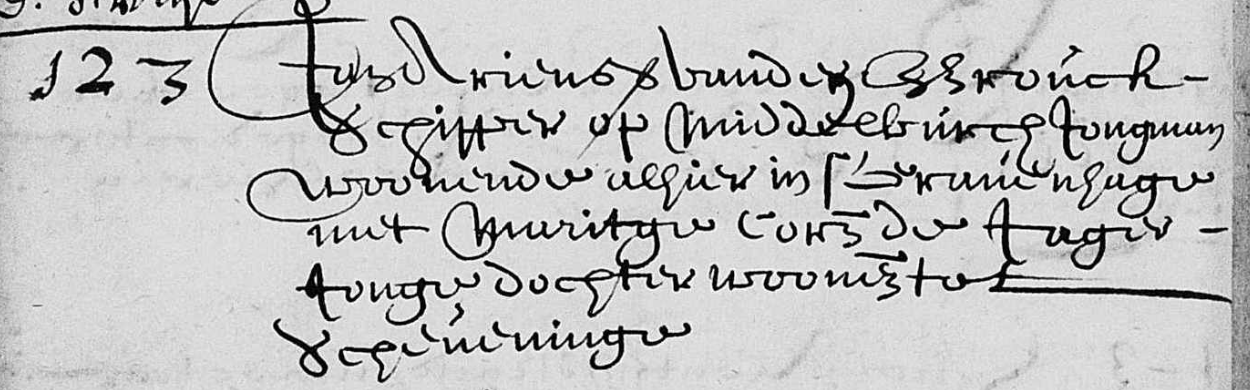 123 Ary Adriensz vander Brouck -
Schipper op Middelburch Jongman
woonende alhier in s'Gravenhage
met Maritge Corsz de Jager -
Jonge dochter woonen tot
Scheveninge